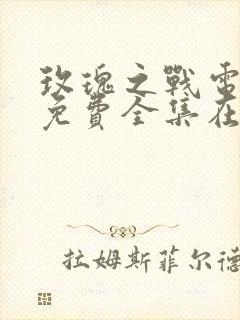 玫瑰之戰電
免費全集在
拉姆斯菲尔德